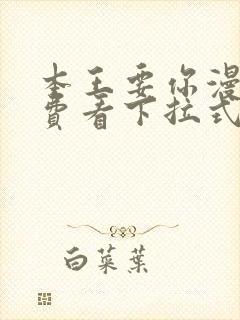 本王要你漫
费看下拉式
白菜葉